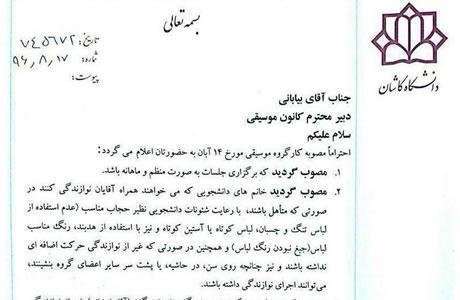 بسمه تعالی
تاریخ: ۷۴۵۶۷۲
شماره: ۹۶,۸,۱۷
پیوست:
دانشگاه کاشان
جناب آقای بیابانی
دبیر محترم کانون موسیقی
سلام علیکم
احتراماً مصوبه کارگروه موسیقی مورخ ۱۴ آبان به حضورتان اعلام می گردد:
۱. مصوب گردید که برگزاری جلسات به صورت منظم و ماهانه باشد.
۲. مصوب گردید خانم های دانشجویی که می خواهند همراه آقایان نوازندگی کنند در
صورتی که متأهل باشند، با رعایت شئونات دانشجویی نظیر حجاب مناسب (عدم استفاده از
لباس تنگ و چسبان، لباس کوتاه یا آستین کوتاه و نیز با استفاده از هدبند، رنگ مناسب
لباس(جیغ نبودن رنگ لباس) و همچنین در صورتی که غیر از نوازندگی حرکت اضافه ای
نداشته باشند و نیز چنانچه روی سن، در حاشیه، یا پشت سر سایر اعضای گروه بنشینند،
می‌توانند اجرای نوازندگی داشته باشند.